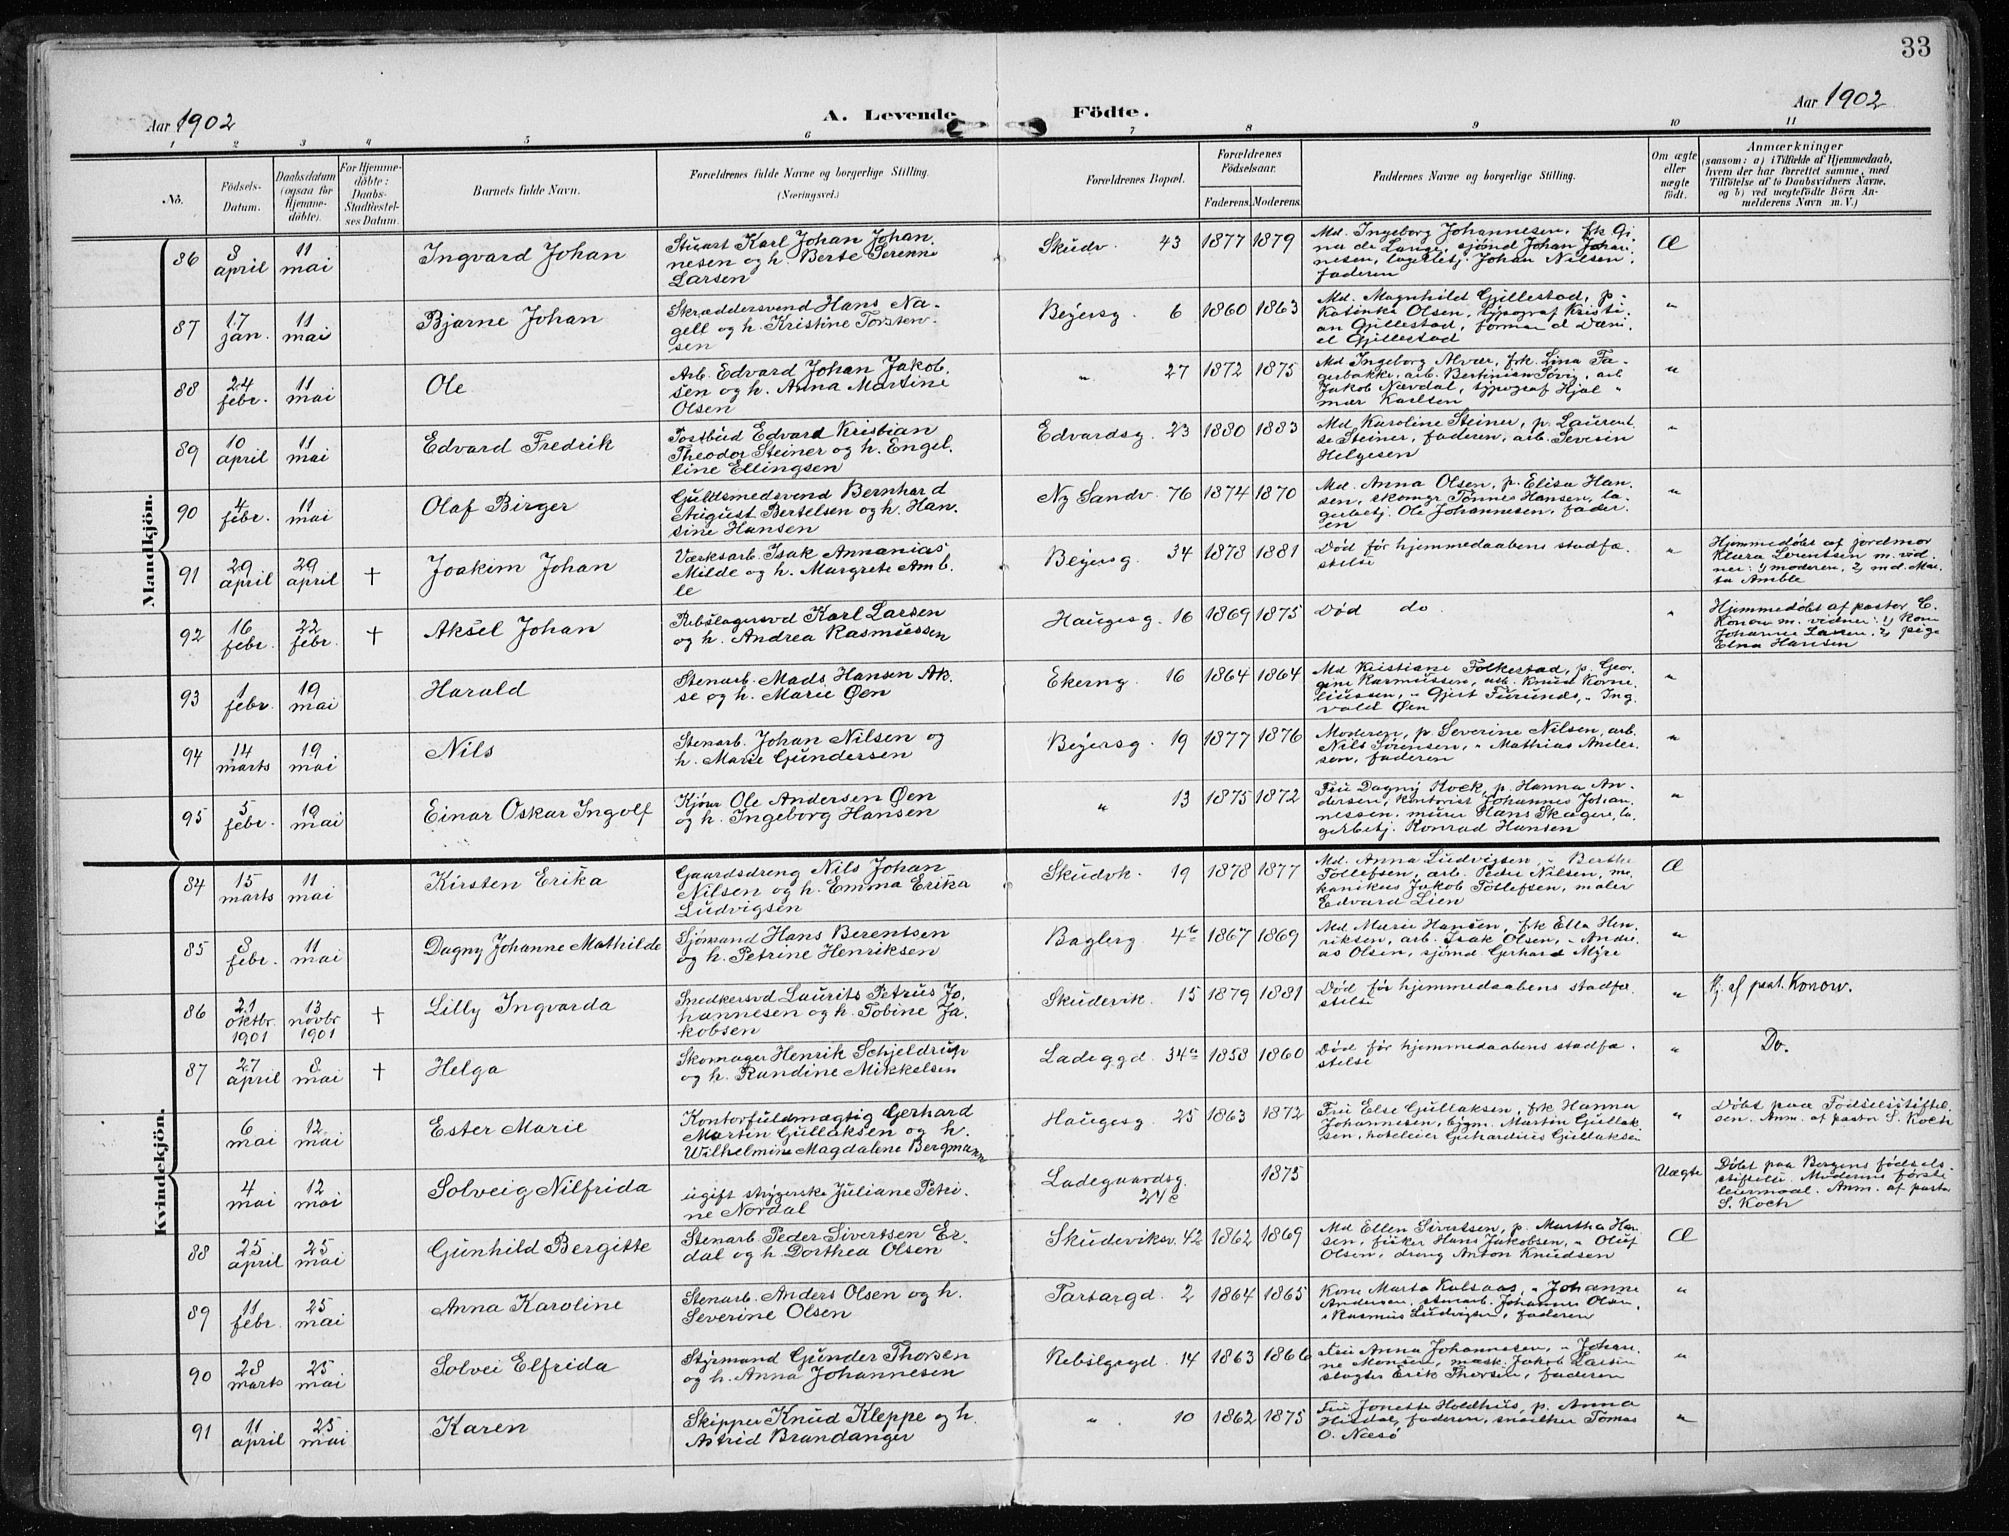 33
Aar 1902
A. Levende Födte.
Aar 1902
1 2 3 4 5 6 7 8 9 10 11
No.
Födsels-
Datum.
Daabsdatum
(ogsaa for
Hjemme-
döbte).
For Hjemme-
döbte:
Daabs-
Stadfæstel-
ses Datum.
Barnets fulde Navn.
Forældrenes fulde Navne og borgerlige Stilling.
(Næringsvei.)
Forældrenes Bopæl.
Forældrenes
Födselsaar.
Faderens. Moderens.
Faddernes Navne og borgerlige Stilling.
Om ægte
eller
uægte
födt.
Anmærkninger
(saasom: a) i Tilfælde af Hjemmedaab,
hvem der har forrettet samme, med
Tilföielse af to Daabsvidners Navne,
og b) ved uægtefödte Börn An-
melderens Navn m. V.)
Mandkjön.
86
3
april
11
mai
Ingvard Johan
Stuart Karl Johan Johan.
nesen og h. Berte Serenne
Larsen
Skudv. 43
1877 1879
Md. Ingeborg Johannesen, frk Gi
na de Lange, sjømd Johan Johan
nesen, lagerbetj. Johan Nilsen,
faderen
Æ
87
17
jan.
11
mai
Bjarne Johan
Skræddersvend Hans Na-
gell og h. Kristine Torsten-
sen
Beyersg. 6
1860 1863
Md. Magnhild Gjillestad, p.
Katinka Olsen, typograf Kristi
an Gjillestad, formand Dani
el Gjillestad
"
88
24
febr.
11
mai
Ole
Arb. Edvard Johan Jakob.
sen og h. Anna Martine
Olsen
" 27
1872 1875
Md Ingeborg Alvær, frk. Lina Fa-
gerbakke, arb. Bertinius Søvig, arb
Jakob Nævdal, typograf Hjal "
mar Karlsen
"
89
10
april
11
mai
Edvard Fredrik
Postbud Edvard Kristian
Theodor Steiner og h. Engel.
line Ellingsen
Edvardsg. 23
1880 1883
Md Karoline Steiner, p. Laurent
se Steiner, faderen, arb. Severin
Helgesen
"
90
4
febr.
11
mai
Olaf Birger
Guldsmedsvend Bernhard
August Bertelsen og h. Han,
sine Hansen
Ny Sandv. 76
1874 1870
Md. Anna Olsen, p. Elisa Han-
sen, skomgr Tønnes Hansen, la-
gerbetj. Ole Johannesen, fader.
en
"
91
29
april
29
april
†
Joakim Johan
Værksarb. Isak Annanias
Milde og h. Margrete Amb.
le
Beyersg. 34
1878 1881
Død før hjemmedaabens stadfæ.
stelse
"
Hjemmedøbt af jordmor
Klara Lorentsen m. vid.
ner: 1) moderen, 2) md. Mar.
ta Amble
92
16
febr.
22
febr.
†
Aksel Johan
Rebslagersvd Karl Larsen
og h. Andrea Rasmussen
Haugesg. 16
1869 1875
Død do
"
Hjemmedøbt af pastor C.
Konow m. vidner: 1) kone
Johanne Larsen, 2) pige
Elna Hansen
93
1
febr.
19
mai
Harald
Stenarb. Mads Hansen Ak.
se og h. Marie Øen
Ekerng. 16
1864 1864
Md Kristiane Folkestad, p. Geor
gine Rasmussen, arb. Knud Korne
liussen, " Gjert Furunds, " Ing
vald Øen
"
94
14
marts
19
mai
Nils
Stenarb. Johan Nilsen og
h. Marie Gundersen
Beyersg. 19
1877 1876
Moderen, p. Severine Nilsen, arb.
Nils Sørensen, " Mathias Ander
sen, faderen
"
95
5
febr.
19
mai
Einar Oskar Ingolf
Kjører Ole Andersen Øen
og h. Ingeborg Hansen
" 13
1875 1872
Fru Dagny Kock, p. Hanna An-
dersen, kontorist Johannes Johan,
nessen, murer Hans Skagen, la-
gerbetj. Konrad Hansen
"
Kvindekjön.
84
15
marts
11
mai
Kirsten Erika
Gaardsdreng Nils Johan
Nilsen og h. Emma Erika
Ludvigsen
Skudvk. 19
1878 1877
Md. Anna Ludvigsen, " Berthe
Tollefsen, arb. Peder Nilsen, me
kanikus Jakob Tollefsen, maler
Edvard Lien
Æ
85
3
febr.
11
mai
Dagny Johanne Mathilde
Sjømand Hans Berentsen
og h. Petrine Henriksen
Baglerg. 4b
1867 1869
Md Marie Hansen, frk Ella Hen
riksen, arb. Isak Olsen, " Andre
as Olsen, sjømd. Gerhard Myre
"
86
21
oktbr.
1901
13
novbr
1901
†
Lilly Ingvarda
Snedkersvd Laurits Petrus Jo.
hannesen og h. Tobine Ja
kobsen
Skudevik. 15
1879 1881
Død før hjemmedaabens stadfæ.
stelse
"
Hj. af past. Konow.
87
27
april
8
mai
†
Helga
Skomager Henrik Schjeldrup
og h. Randine Mikkelsen
Ladeggd. 34a
1858 1860
Død før hjemmedaabens stadfæ.
stelse
"
Do.
6
mai
12
mai
Ester Marie
Kontorfuldmægtig Gerhard
Martin Gullaksen og h.
Wilhelmine Magdalene Bergmann
Haugesg. 25
1863 1872
Fru Else Gullaksen, frk. Hanna
Johannesen, bygm. Martin Gullak.
sen, hoteleier Gerhardius Gullaksen
"
Døbt paa Fødselsstiftel.
sen. Anm. af pastor S. Koch
4
mai
12
mai
Solveig Nilfrida
ugift strygerske Juliane Petri
ne Nordal
Ladegaardsg.
1875
Uægte
Døbt paa Bergens fødsels.
stiftelse. Moderens første
leiermaal. Anm. af pastor
S. Koch
88
25
april
25
mai
Gunhild Bergitte
Stenarb Peder Sivertsen Er.
dal og h. Dorthea Olsen
Skudeviksv. 42
1862 1869
Md Ellen Sivertsen, p. Martha Han
sen, fisker Hans Jakobsen, " Oluf
Olsen, dreng Anton Knudsen
Æ
89
11
febr.
25
mai
Anna Karoline
Stenarb. Anders Olsen og h.
Severine Olsen
Tartargd. 2
1864 1865
Kone Marta Kalsaas, " Johanne
Andersen, stenarb. Johannes Olsen,
" Rasmus Ludvigsen, faderen
"
90
28
marts
25
mai
Solvei Elfrida
Styrmand Gunder Thorsen
og h. Anna Johannesen
Rebslgrgd. 14
1863 1866
Fru Anna Johannesen, " Johan,
ne Monsen, mask. Jakob Larsen
slagter Erik Thorsen, faderen
"
91
11
april
25
mai
Karen
Skipper Knud Kleppe og h.
Astrid Brandanger
" 10
1862 1875
Fru Jonette Holdhus, p. Anna
Hisdal, faderen, snedker Tomas
O. Næsø
"